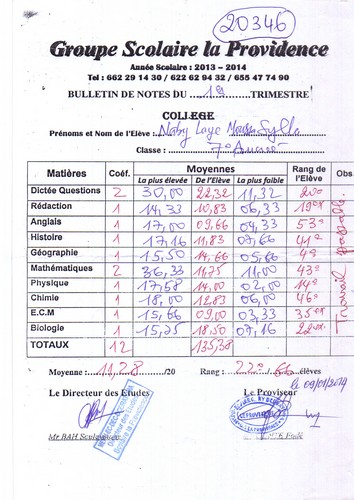 20346
Groupe Scolaire la Providence
Année Scolaire : 2013 – 2014
Tel : 662 29 14 30 / 622 62 94 32 / 655 47 74 90
BULLETIN DE NOTES DU 1er TRIMESTRE
COLLEGE
Prénoms et Nom de l'Elève : Naby Laye Moussa Sylla
Classe : 7e Année
Matières Coéf. Moyennes Rang de l'Elève Obs
La plus élevée De l'Elève La plus faible
Dictée Questions 2 30,00 22,32 11,32 20e
Rédaction 1 14,33 10,83 06,33 19ex
Anglais 1 17,00 09,66 04,33 53e
Histoire 1 17,16 11,83 07,66 41e
Géographie 1 15,50 14,66 05,66 4e
Mathématiques 2 36,33 11,00 43e
Physique 1 17,58 14,00 02,00 14e
Chimie 1 18,00 12,83 06,00 46e
E.C.M 1 15,66 09,00 03,33 35ex
Biologie 1 18,50 07,16 22ex
TOTAUX 12 135,38
Travail passable
Moyenne : 11,28 /20 Rang : 22e /66 élèves
le 09/01/2014
Le Directeur des Etudes Le Proviseur
Mr BAH